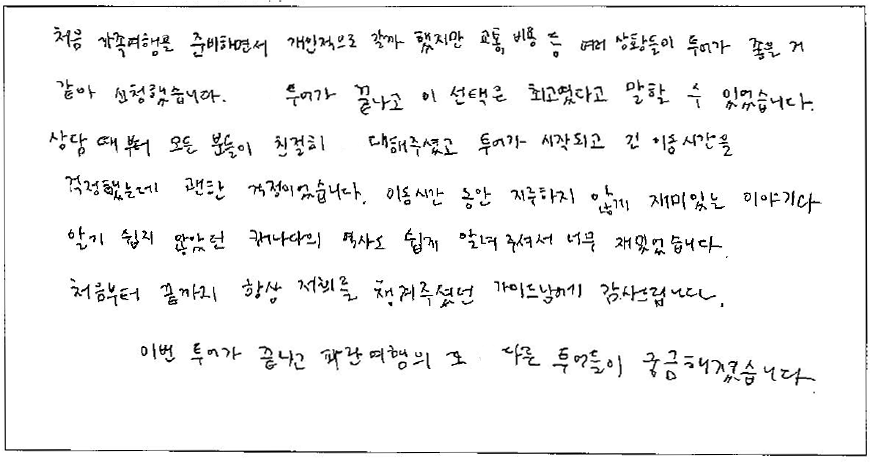 처음 가족여행을 준비하면서 개인적으로 갈까 했지만 교통, 비용 등 여러 상황들이 투어가 좋을 거
같아 신청했습니다. 투어가 끝나고 이 선택은 최고였다고 말할 수 있었습니다.
상담 때부터 모든 분들이 친절히 대해주셨고 투어가 시작되고 긴 이동시간을
걱정했는데 괜한 걱정이었습니다. 이동시간 동안 지루하지 않게 재미있는 이야기다
알기 쉽지 않았던 캐나다의 역사도 쉽게 알려주셔서 너무 재밌었습니다.
처음부터 끝까지 항상 저희를 챙겨주셨던 가이드님에게 감사드립니다.
이번 투어가 끝나고 파란여행의 또 다른 투어들이 궁금해졌습니다.